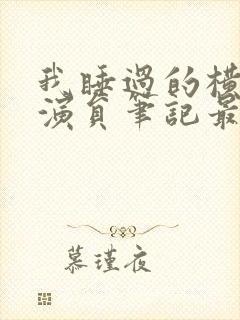 我睡過的橫
演員筆記最
慕瑾夜